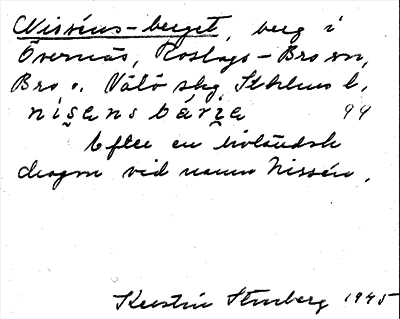 Nisséus-berget, berg i
Övernäs, Roslags-Bro sn,
Bro o. Vätö skg Sthlms l.
nisens bärja 94
Efter en livländsk
dragon vid namn Nissén.
Kerstin Stenberg 1945